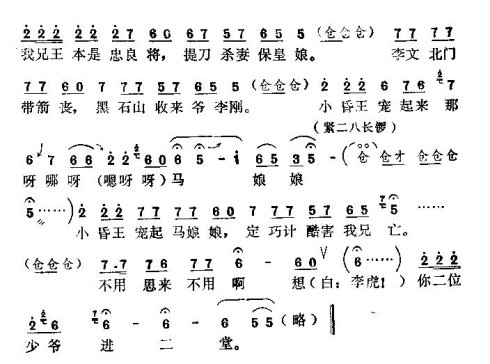 2 2 2 2 2 2 7 6 0 6 7 5 7 6 5 5 (仓仓仓) 7 7 7 7
我兄王 本是忠良将， 提刀 杀妻保皇娘。 李文 北门
7 7 6 0 7 7 7 7 5 7 6 5 5 (仓仓仓) 2 2 2 6 7 6 7
带箭 丧， 黑 石山 收来 爷 李刚。 小昏王 宠起来 那
(紧二八长锣)
6 7 6 6 2 2 6 0 6 5 - i 6 5 3 5 - (仓 仓才 仓仓仓
呀 哪 呀 (嗯呀呀) 马 娘 娘
5 ……) 2 2 2 7 7 7 7 6 0 7 7 5 7 6 5 5 ……
小昏王 宠起 马娘 娘， 定 巧计 酷害 我兄 亡。
(仓仓仓) 7·7 7 6 7 7 6 - 6 0 (6……) 2 2 2
不用 恩来 不用 啊 想 (白：李虎！) 你二位
2 2 6 6 - 6 - 6 5 5 (略)
少爷 进 二 堂。